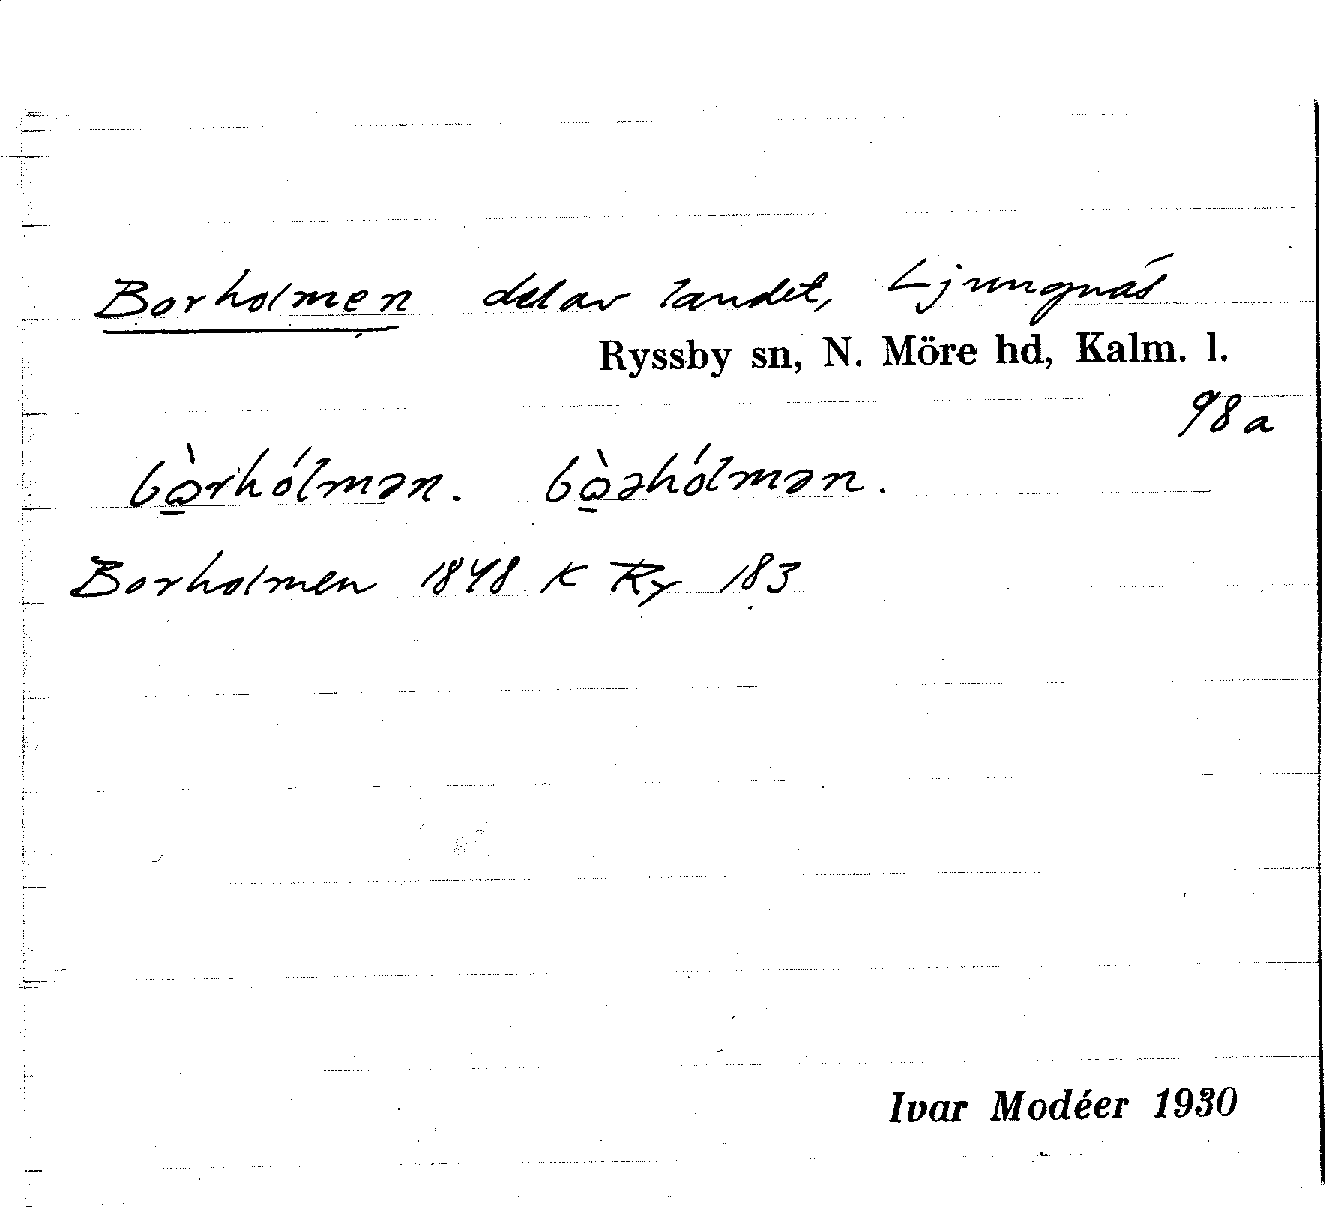 Borholmen del av landet, Ljungnäs
Ryssby sn, N. Möre hd, Kalm. l.
98a
bò̱rhólmən. bò̱əhólmən.
Borholmen 1848 K Ry 183
Ivar Modéer 1930